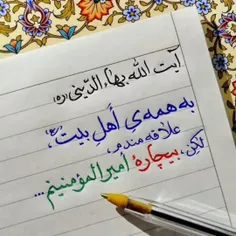 آیت الله بهاءالدّینی(ره)
به همه‌یِ أهلِ بیت(ع)،
علاقه مندم،
لکِن، بیچارۀ أمیرالمؤمنینم...